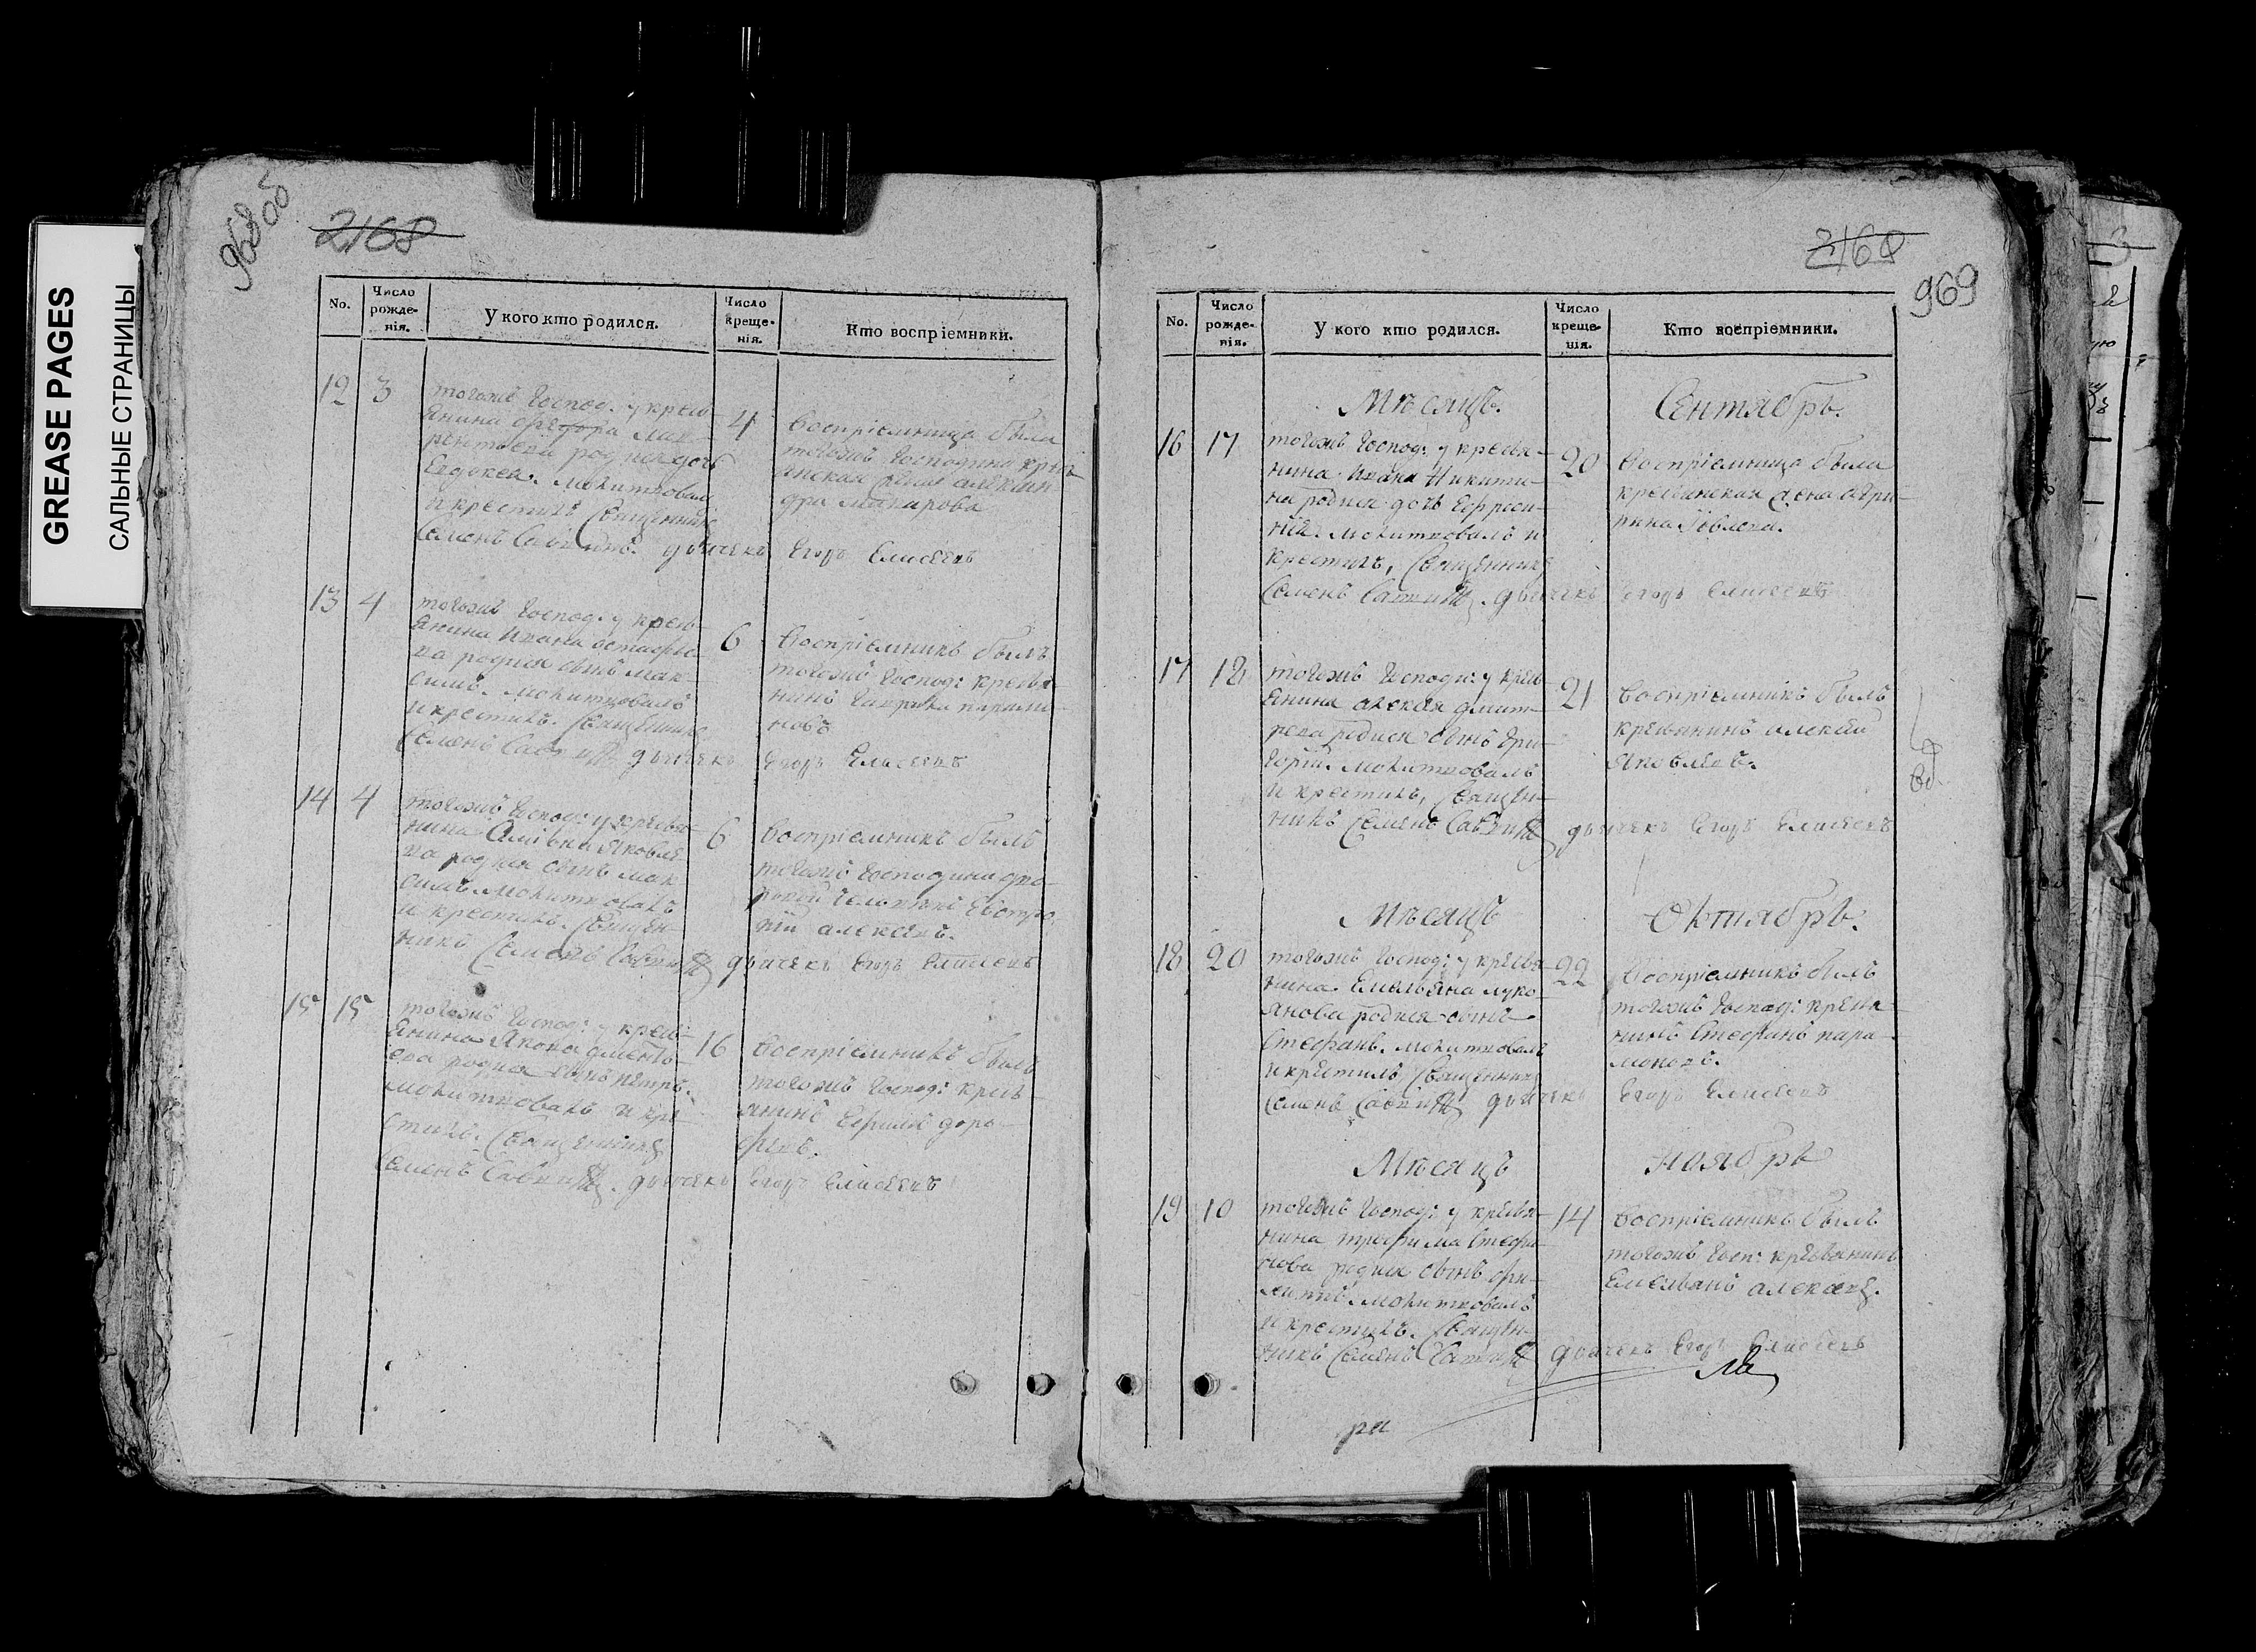 GREASE PAGES
САЛЬНЫЕ СТРАНИЦЫ
968 об
2168
No.
Число рожде-нія.
У кого кто родился.
Число креще-нія.
Кто воспріемники.
12 3 тогожъ господ: у кресть
янина Федора Лав
рентьева родися дочь
Евдокея. молитвовалъ
и крестилъ Священникъ
Семенъ Савинъ. дьячекъ Егоръ Елисеевъ
4 Воспріемница была
тогожъ господина крест
янская жена алексан
дра Макарова
13 4 тогожъ господ: у кресть
янина Ивана остафье
ва родися сынъ Мак
симъ. молитвовалъ
и крестилъ. Священникъ
Семенъ Савинъ дьячекъ Егоръ Елисеевъ
6 Воспріемникъ былъ
тогожъ господ: крестья
нинъ Гаврила парамо
новъ
14 4 тогожъ господ: у крестья
нина Яковле
ва родися сынъ Мак
симъ молитвовалъ
и крестилъ. Священ
никъ Семенъ Савинъ дьячекъ Егоръ Елисеевъ
6 Воспріемникъ былъ
тогожъ господина дво
ровой человекъ
алексеевъ.
15 15 тогожъ господ: у кресть
янина Якова дменть
ева родися сынъ петръ.
молитвовалъ и кре
стилъ. Священникъ
Семенъ Савинъ. дьячекъ Егоръ Елисеевъ
16 Воспріемникъ былъ
тогожъ господ: кресть
янинъ Ефимъ доро
феевъ.
2168
969
No.
Число рожде-нія.
У кого кто родился.
Число креще-нія.
Кто воспріемники.
Мѣсяцъ. Сентябрь.
16 17 тогожъ господ: у крестья
нина Ивана Никити
на родися дочь Ефроси
нія. молитвовалъ и
крестилъ, Священникъ
Семенъ Савинъ. дьячекъ Егоръ Елисеевъ
20 Воспріемница была
крестьянская жена
Іовлева.
17 18 тогожъ господи: у кресть
янина алексея дмит
рева родися сынъ Гри
горій. молитвовалъ
и крестилъ, Священ
никъ Семенъ Савинъ дьячекъ Егоръ Елисеевъ
21 Воспріемникъ былъ
крестьянинъ алексей
Яковлевъ.
Мѣсяцъ Октябрь.
18 20 тогожъ господ: у крестья
нина Емельяна луко
янова родися сынъ
Стефанъ. молитвовалъ
и крестилъ, Священникъ
Семенъ Савинъ дьячекъ Егоръ Елисеевъ
22 Воспріемникъ былъ
тогожъ господ: крестья
нинъ Стефанъ пара
моновъ.
Мѣсяцъ Ноябрь
19 10 тогожъ господ: у крестья
нина трофима Стефа
нова родися сынъ фи
липъ. молитвовалъ
и крестилъ. Священ
никъ Семенъ Савинъ дьячекъ Егоръ Елисеевъ
14 Воспріемникъ былъ
тогожъ госп: крестьянинъ
Емельянъ алексеев.
ра